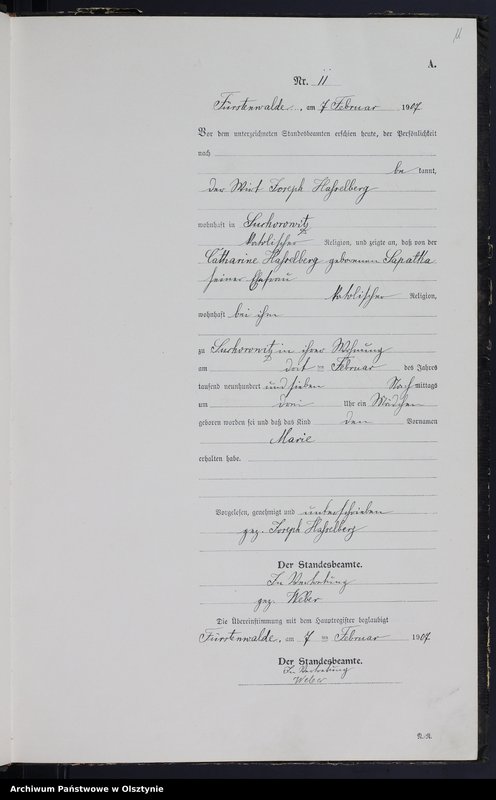 11
A.
Nr. 11
Fürstenwalde, am 7 Februar 1907
Vor dem unterzeichneten Standesbeamten erschien heute, der Persönlichkeit
nach
be kannt,
der Wirt Joseph Hasselberg
wohnhaft in Suchorowitz
katolischer Religion, und zeigte an, daß von der
Catharine Hasselberg geborenen Sapatka
seiner Ehefrau
katolischer Religion,
wohnhaft bei ihm
zu Suchorowitz in ihrer Wohnung
am ten Februar des Jahres
tausend neunhundert und sieben Nach mittags
um drei Uhr ein Mädchen
geboren worden sei und daß das Kind den Vornamen
Marie
erhalten habe.
Vorgelesen, genehmigt und unterschrieben
gez. Joseph Hasselberg
Der Standesbeamte.
In Vertretung
gez. Weber
Die Übereinstimmung mit dem Hauptregister beglaubigt
Fürstenwalde, am 7 ten Februar 1907
Der Standesbeamte.
In Vertretung
Weber
Archiwum Państwowe w Olsztynie